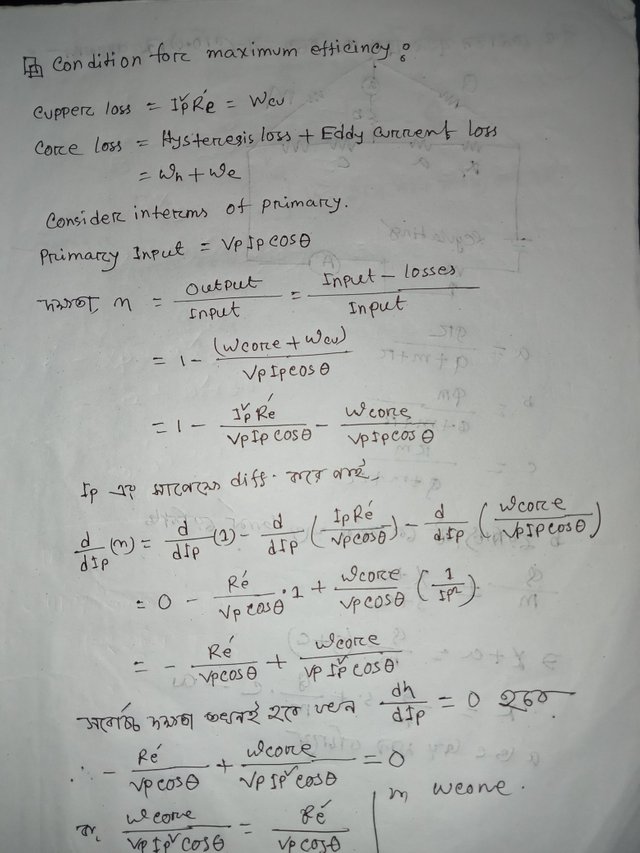 Condition forc maximum efficincy:
Cupperc loss = Ip²Ré = Wcu
Corce loss = Hysteregis loss + Eddy current loss
= Wh + We
Considerc interms of primarcy.
Primarcy Input = VpIpcosθ
দক্ষতা, η = Output/Input = (Input - losses)/Input
= 1 - (Wcorce + Wcu)/(VpIpcosθ)
= 1 - Ip²Ré/(VpIpcosθ) - Wcorce/(VpIpcosθ)
Ip এর সাপেক্ষে diff. করে পাই,
d/dIp (η) = d/dIp (1) - d/dIp (IpRé/(Vpcosθ)) - d/dIp (Wcorce/(VpIpcosθ))
= 0 - Ré/(Vpcosθ) · 1 + Wcorce/(Vpcosθ) (1/Ip²)
= - Ré/(Vpcosθ) + Wcorce/(VpIp²cosθ)
সর্বোচ্চ দক্ষতা তখনই হবে যখন dη/dIp = 0 হবে
∴ - Ré/(Vpcosθ) + Wcorce/(VpIp²cosθ) = 0
বা, Wcorce/(VpIp²cosθ) = Ré/(Vpcosθ)
wcorce.